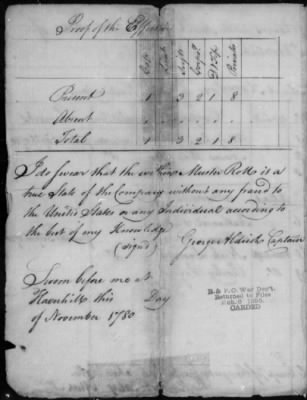 Proof of the Effectives
Capt. Lieut. Serjts Corpol. D & Fifs Privates
Present 1 3 2 1 8
Absent
Total 1 3 2 1 8
I do swear that the within Muster Roll is a
true State of the Company without any fraud to
the United States or any Individual according to
the best of my Knowledge
(Signd) George Aldrich Captain
Sworn before me at
this Day
of November 1780
R. & P. O. War Dep't.
Returned to Files
CARDED